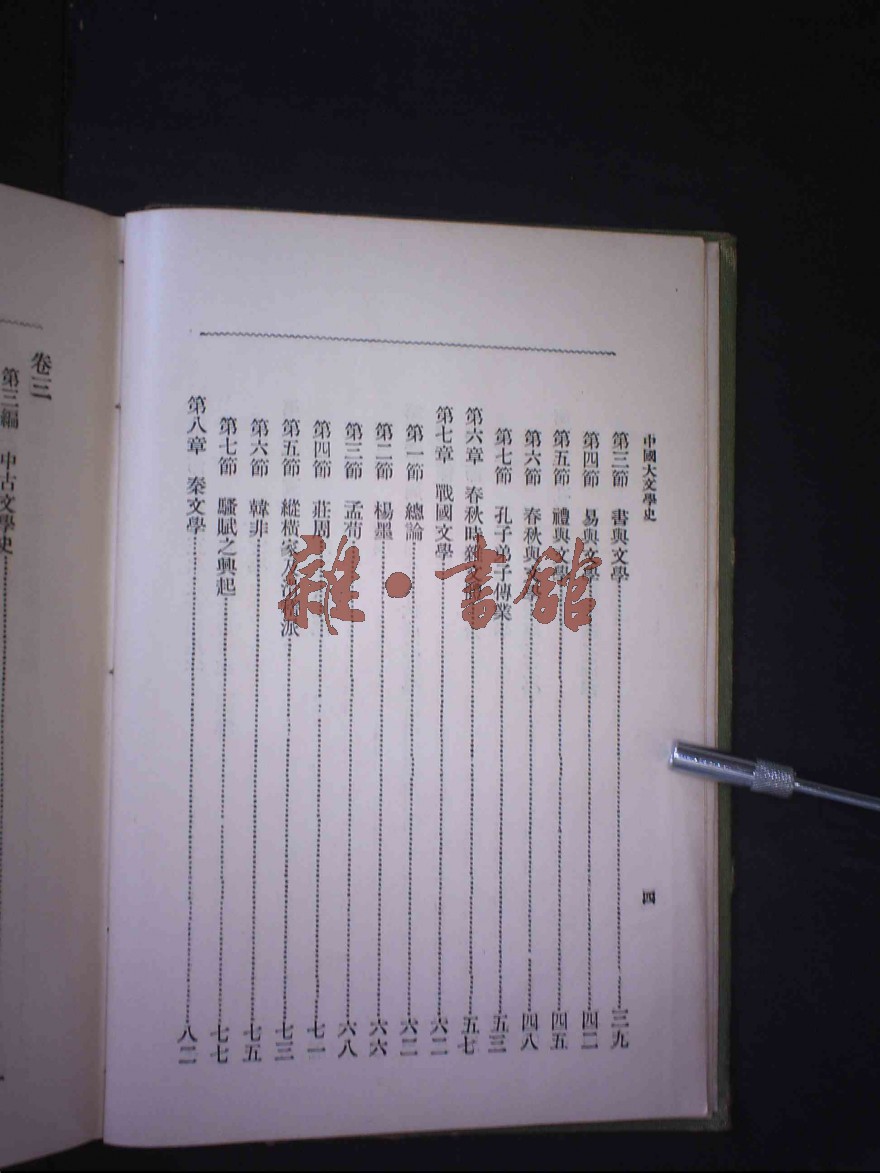 中國大文學史
四
第三節 書與文學……三九
第四節 易與文學……四二
第五節 禮與文學……四五
第六節 春秋與文學……四八
第七節 孔子弟子傳業……五三
第六章 春秋時雜文……五七
第七章 戰國文學……六二
第一節 總論……六二
第二節 楊墨……六六
第三節 孟荀……六八
第四節 莊周……七一
第五節 縱橫家及……派……七三
第六節 韓非……七五
第七節 騷賦之興起……七七
第八章 秦文學……八二
卷三
第三編 中古文學史……
雜·書館